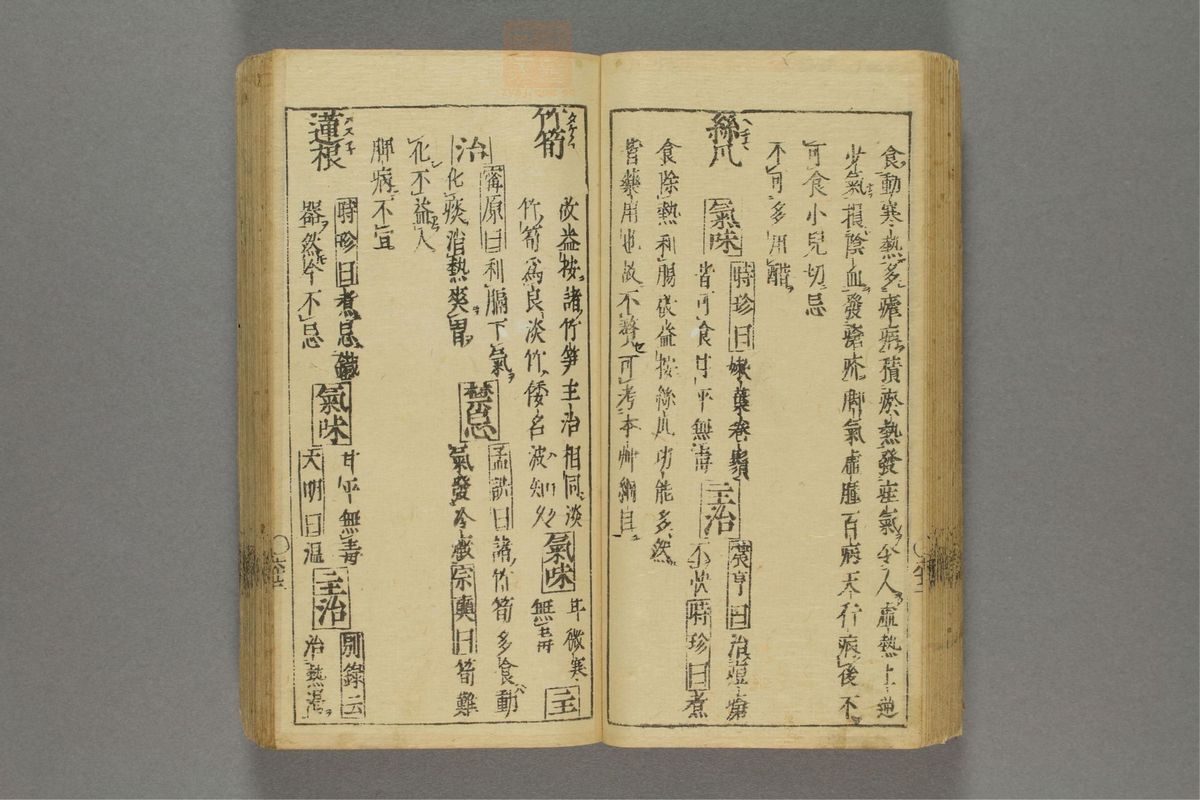 食動寒熱多瘧病積瘀熱發疰氣令人虛熱上逆
少氣損陰血發瘡疥脚氣虛腫百病天行病後不
可食小兒切忌
不可多用醋
絲瓜
氣味
時珍曰嫩葉卷鬚
皆可食甘平無毒
主治
震亨曰治痘瘡
不快時珍曰煮
食除熱利腸
益按絲瓜功能多然
皆藥用也故不贅可考本艸綱目
竹筍
故益按諸竹笋主治相同淡
竹筍爲良淡竹倭名波知久
氣味
甘微寒
無毒
主治
甯原曰利膈下氣
化痰消熱爽胃
禁忌
孟詵曰諸竹筍多食動
氣發冷癥宗奭曰筍難
化不益人
脾病不宜
蓮根
ハスネ
時珍曰煮忌鐵
器然今不忌
氣味
甘平無毒
大明曰温
主治
別錄云
治熱渴